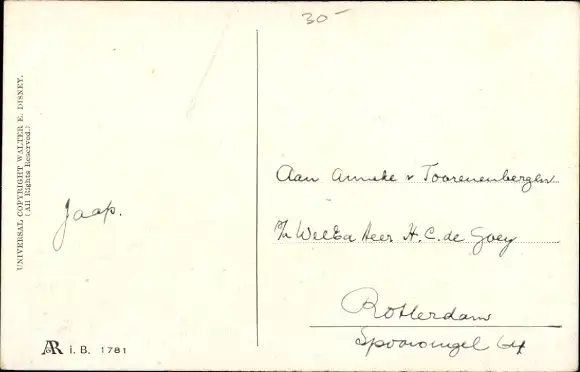 30-
UNIVERSAL COPYRIGHT WALTER E. DISNEY.
(All Rights Reserved.)
Jaap.
Aan Anneke v Toorenenbergen
p/a WelEd Heer H. C. de Goey
Rotterdam
AR i.B. 1781